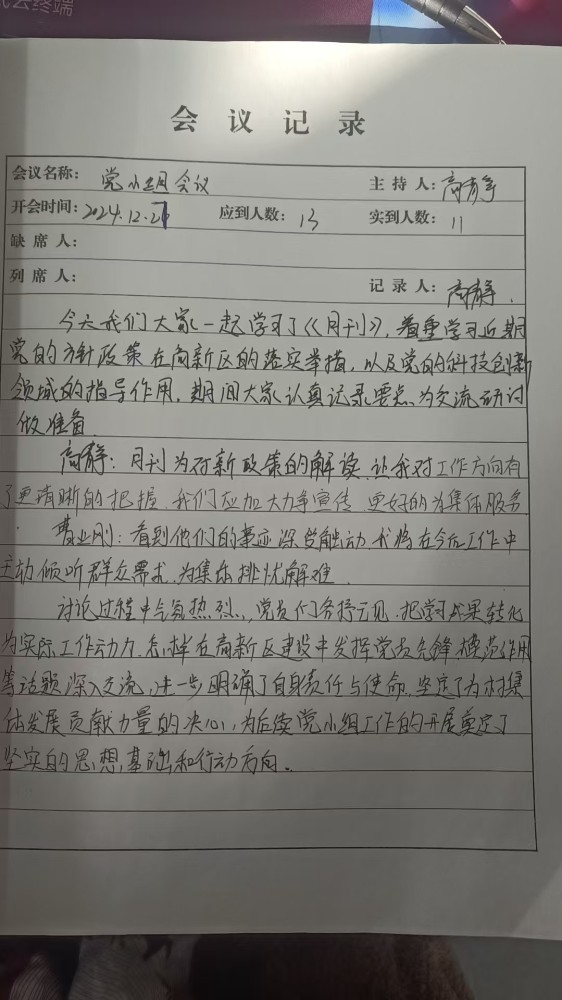 云终端
会议记录
会议名称: 党小组会议 主 持 人: 高静
开会时间: 2024.12.27 应到人数: 13 实到人数: 11
缺 席 人:
列 席 人: 记 录 人: 高静.
今天我们大家一起学习了《月刊》,着重学习近期
党的方针政策在高新区的落实举措,以及党的科技创新
领域的指导作用,期间大家认真记录要点为交流研讨
做准备
高静:月刊为对新政策的解读,让我对工作方向有
了更清晰的把握,我们应加大力争宣传,更好的为集体服务
业刚:看到他们的事迹深受触动,我将在今后工作中
主动倾听群众需求,为集体排忧解难
讨论过程中气氛热烈,党员们各抒己见,把学习成果转化
为实际工作动力,怎样在高新区建设中发挥党员先锋模范作用
等话题深入交流,进一步明确了自身责任与使命,坚定了为村集
体发展贡献力量的决心,为后续党小组工作的开展奠定了
坚实的思想基础和行动方向。